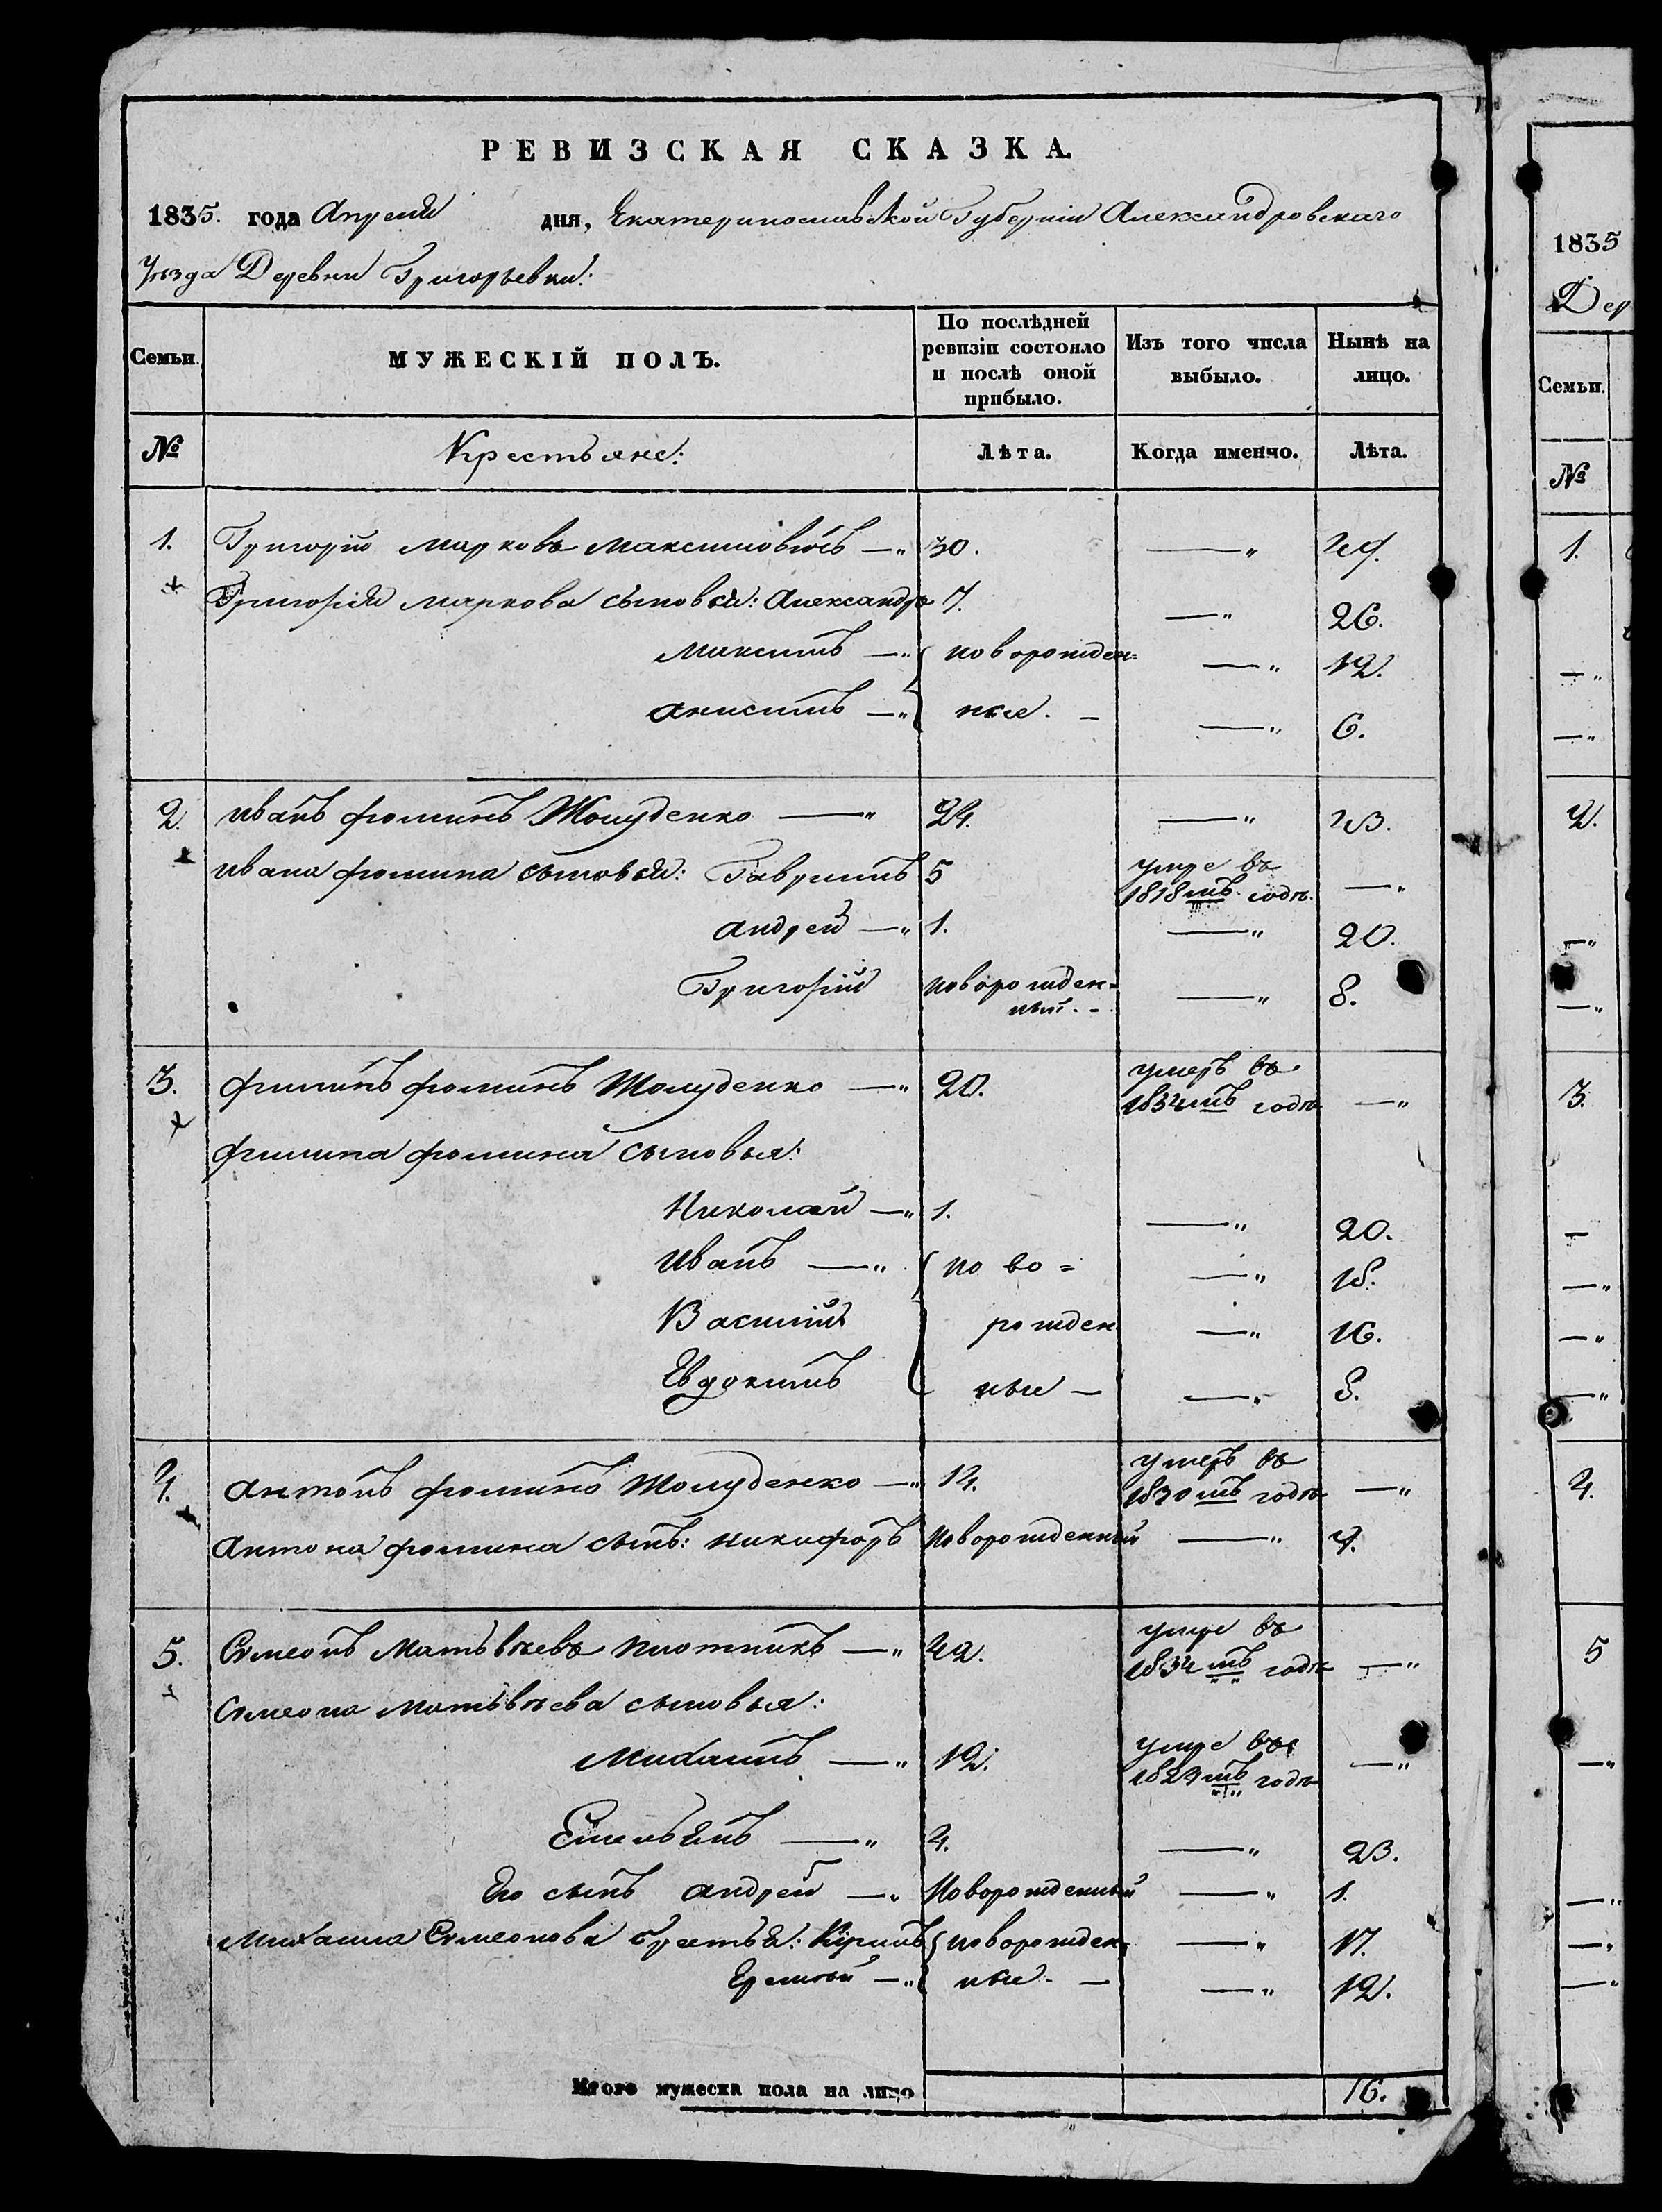 РЕВИЗСКАЯ СКАЗКА.
1835. года Апреля дня, Екатеринославской Губерніи Александровскаго
уѣзда Деревни Григорьевки:
Семьи. МУЖЕСКІЙ ПОЛЪ. По послѣдней ревизіи состояло и послѣ оной прибыло. Изъ того числа выбыло. Нынѣ на лицо.
№ Крестьяне: Лѣта. Когда именно. Лѣта.
1. Григорій Марковъ Максимовичъ —„ 30. —„ 49.
Григорія Маркова сыновья: Александръ 7. —„ 26.
Максимъ —„ новорожден= —„ 12.
Анисимъ —„ ные. — —„ 6.
2. Иванъ Фоминъ Жолуденко —„ 24. —„ 43.
Ивана Фомина сыновья: Гаврилъ 5 умре въ 1818мъ годѣ. —„
Андрей —„ 1. —„ 20.
Григорій новорожден= ный. — —„ 8.
3. Филипъ Фоминъ Жолуденко —„ 20. умеръ въ 1834мъ годѣ —„
Филипа Фомина сыновья:
Николай —„ 1. —„ 20.
Иванъ —„ ново= —„ 18.
Василій рожден —„ 16.
Евдокимъ ные — —„ 8.
4. Антонъ Фоминъ Жолуденко —„ 14. умеръ въ 1830мъ годѣ —„
Антона Фомина сынъ: Никифоръ Новорожденный —„ 4.
5. Симеонъ Матвѣевъ Плотникъ —„ 42. умре въ 1834мъ годѣ —„
Симеона Матьвѣева сыновья:
Михаилъ —„ 12. умре въ 1823мъ годѣ —„
Емельянъ —„ 4. —„ 23.
Его сынъ Андрей —„ Новорожденный —„ 1.
Михаила Симеонова братья: Кирилъ новорожден= —„ 17.
Ермолай —„ ные — —„ 12.
Итого мужеска пола на лицо 16.
1835
Дер
Семьи.
№
1.
2.
3.
4.
5